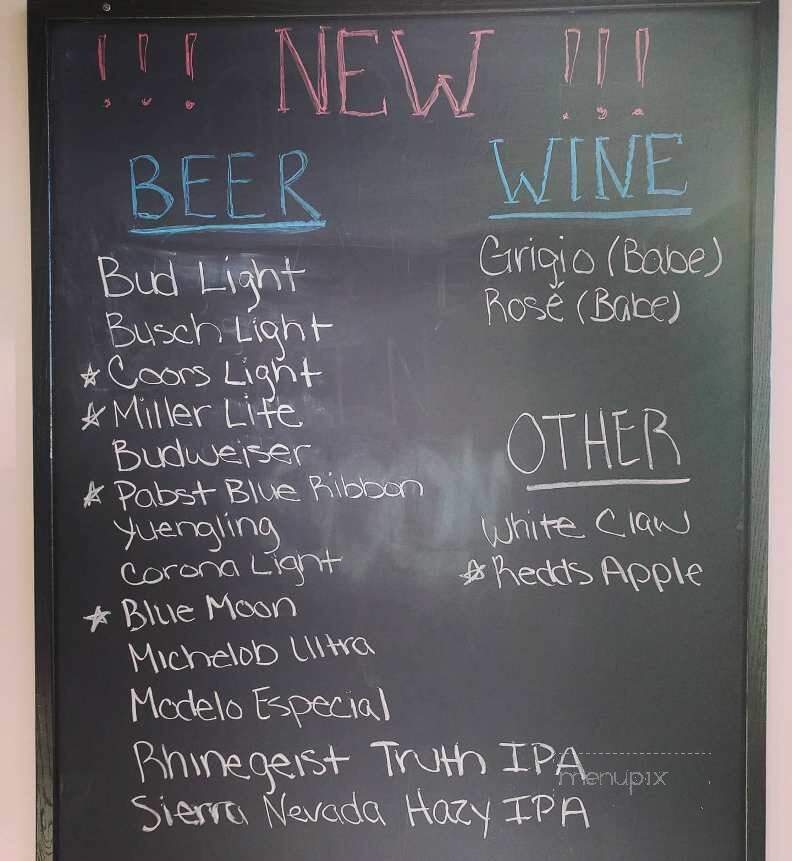 !!! NEW !!!
BEER
Bud Light
Busch Light
☆ Coors Light
☆ Miller Lite
Budweiser
☆ Pabst Blue Ribbon
Yuengling
Corona Light
☆ Blue Moon
Michelob Ultra
Modelo Especial
Rhinegeist Truth IPA
Sierra Nevada Hazy IPA
WINE
Grigio (Babe)
Rosé (Babe)
OTHER
White Claw
☆ Redds Apple
menupix